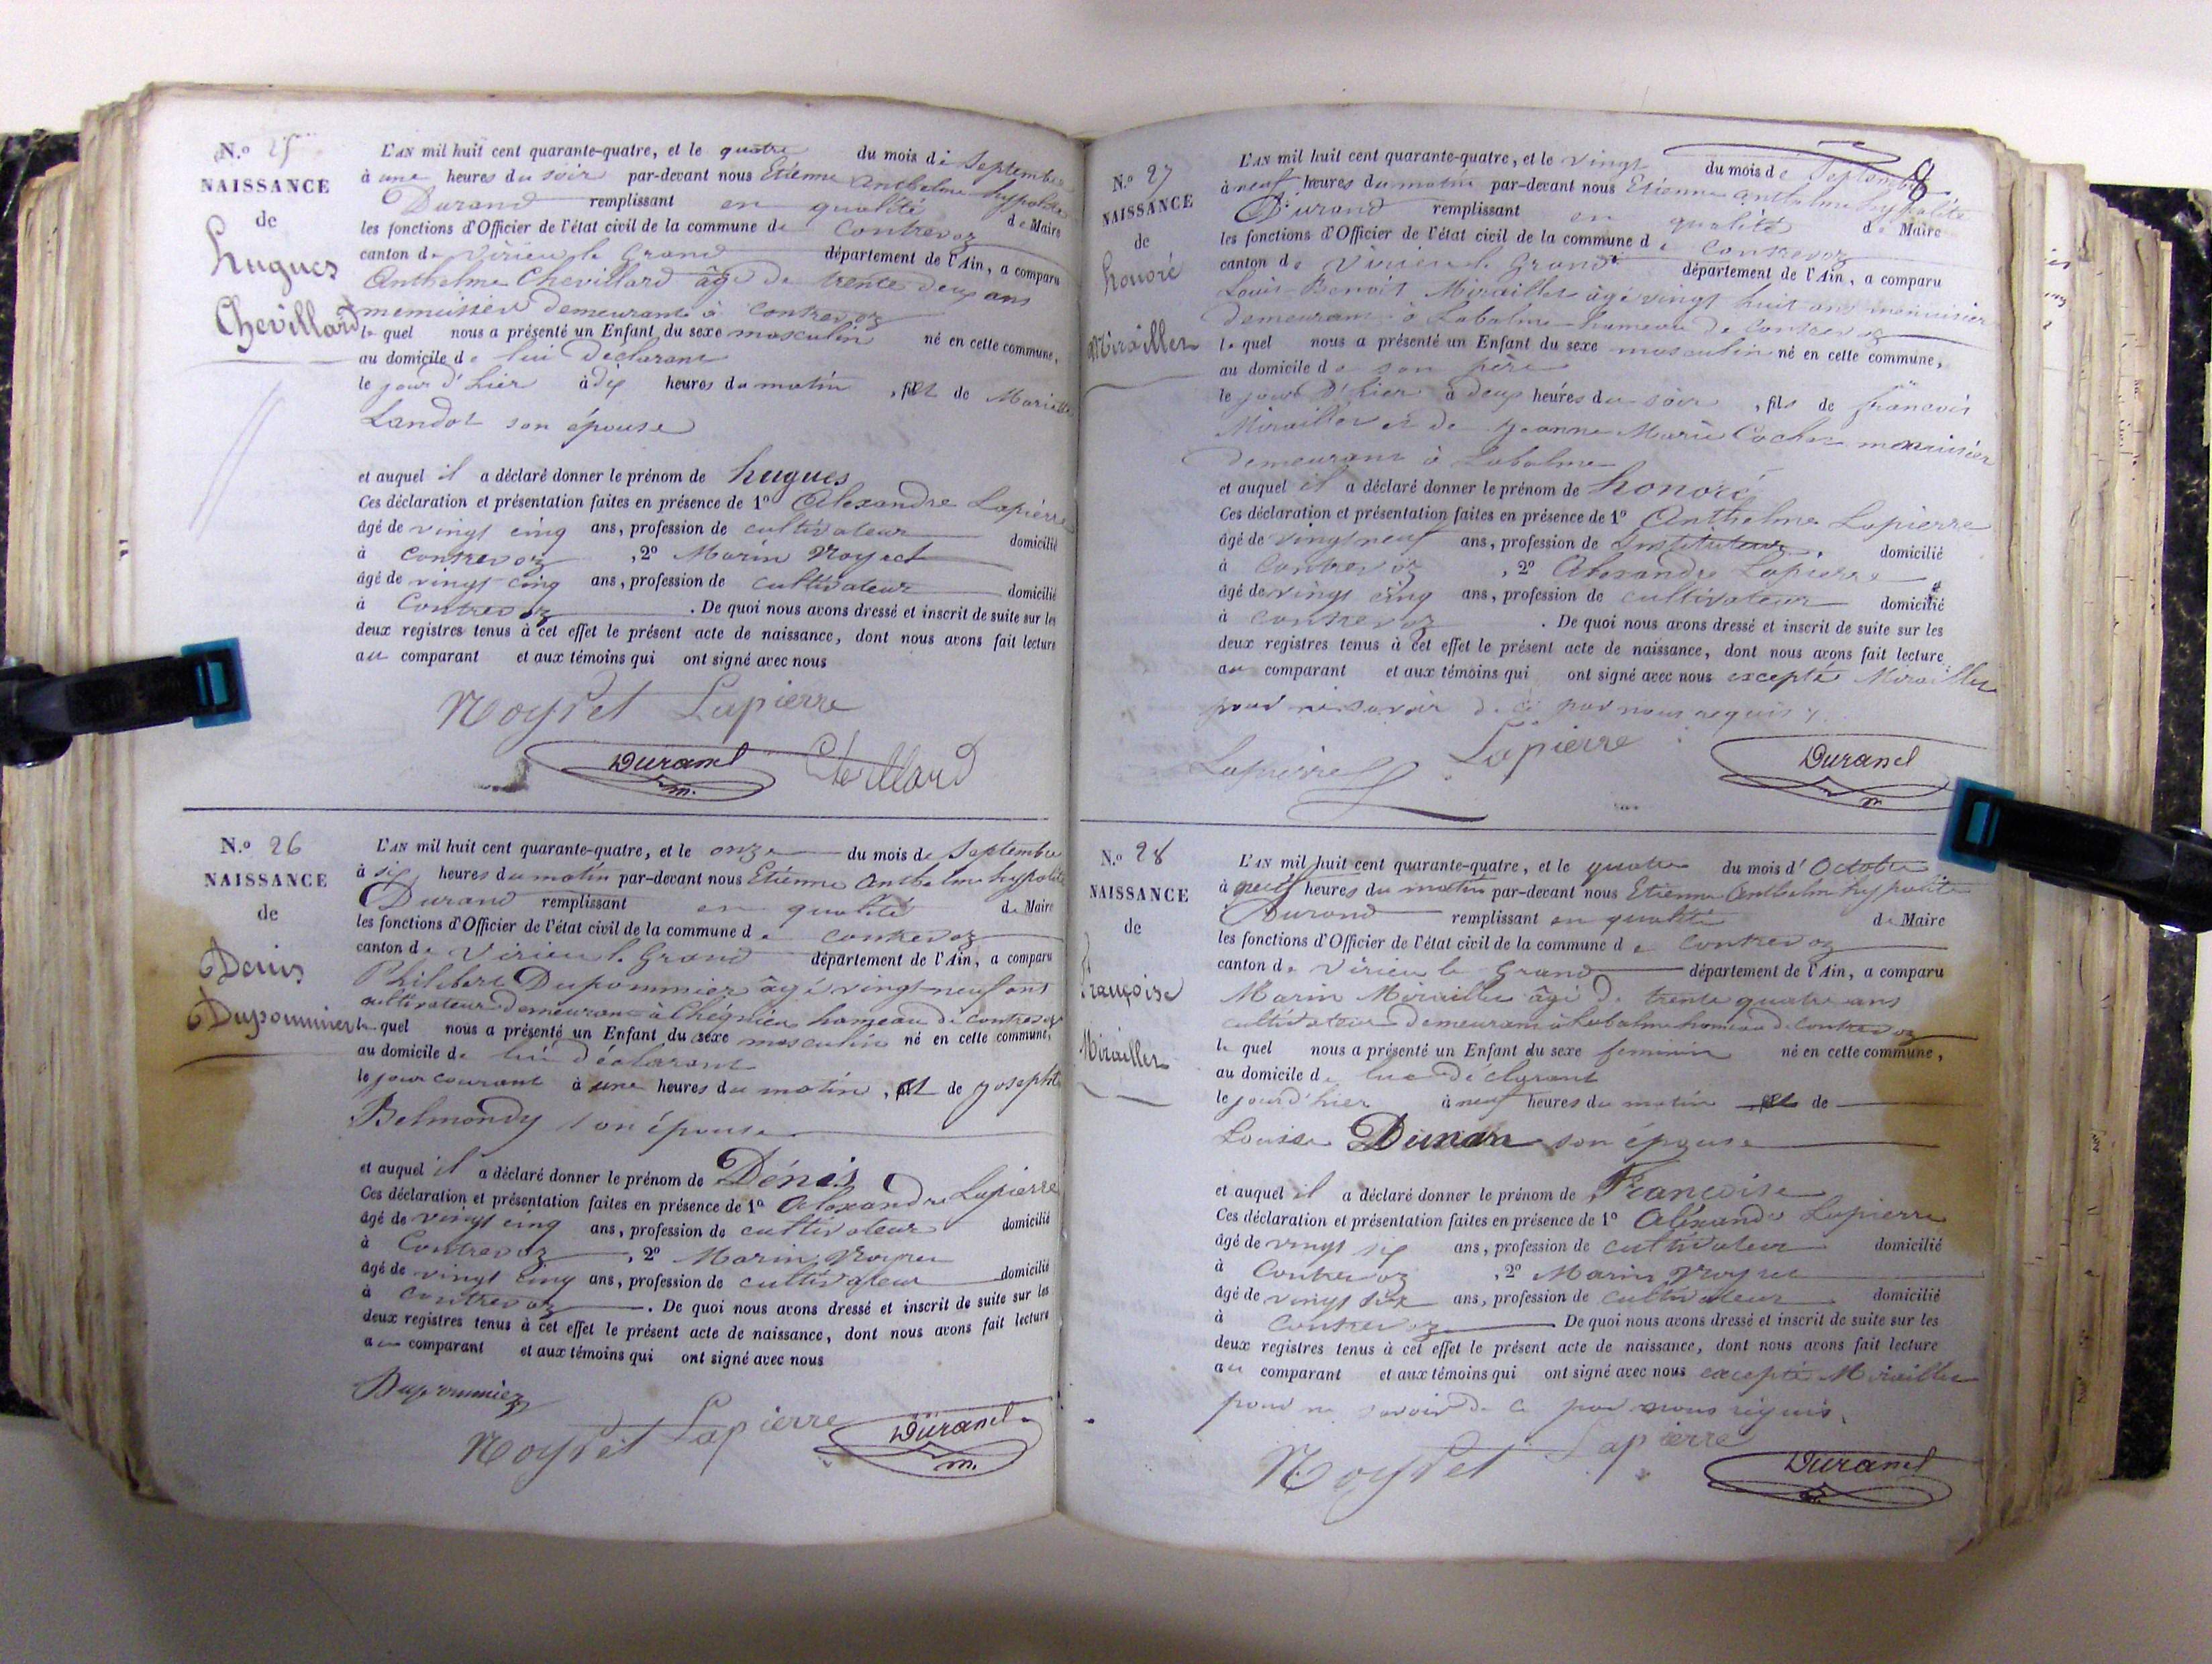 N.º 25
NAISSANCE
de
hugues
Chevillard
L'AN mil huit cent quarante-quatre, et le quatre du mois de Septembre
à une heures du soir par-devant nous Etienne Anthelme hypolite
Durand remplissant en qualité de Maire
les fonctions d'Officier de l'état civil de la commune de Contrevoz
canton de Virieu le Grand département de l'Ain, a comparu
Anthelme Chevillard âgé de trente deux ans
menuisier demeurant à Contrevoz
le quel nous a présenté un Enfant du sexe masculin né en cette commune,
au domicile de lui déclarant
le jour d'hier à dix heures du matin, fils de Mariette
Landot son épouse
et auquel il a déclaré donner le prénom de hugues
Ces déclaration et présentation faites en présence de 1º Alexandre Lapierre
âgé de vingt cinq ans, profession de cultivateur domicilié
à Contrevoz, 2º Marin Noyret
âgé de vingt cinq ans, profession de cultivateur domicilié
à Contrevoz. De quoi nous avons dressé et inscrit de suite sur les
deux registres tenus à cet effet le présent acte de naissance, dont nous avons fait lecture
au comparant et aux témoins qui ont signé avec nous
Noyret Lapierre
Durand m. Chevillard
N.º 26
NAISSANCE
de
Denis
Dupommier
L'AN mil huit cent quarante-quatre, et le onze du mois de Septembre
à six heures du matin par-devant nous Etienne Anthelme hypolite
Durand remplissant en qualité de Maire
les fonctions d'Officier de l'état civil de la commune de Contrevoz
canton de Virieu le Grand département de l'Ain, a comparu
Philibert Dupommier âgé vingt-neuf ans
cultivateur demeurant à Chégnieu hameau de Contrevoz
le quel nous a présenté un Enfant du sexe masculin né en cette commune,
au domicile de lui déclarant
le jour courant à une heures du matin, fils de Josephte
Belmondy son épouse
et auquel il a déclaré donner le prénom de Dénis
Ces déclaration et présentation faites en présence de 1º Alexandre Lapierre
âgé de vingt cinq ans, profession de cultivateur domicilié
à Contrevoz, 2º Marin Noyret
âgé de vingt cinq ans, profession de cultivateur domicilié
à Contrevoz. De quoi nous avons dressé et inscrit de suite sur les
deux registres tenus à cet effet le présent acte de naissance, dont nous avons fait lecture
au comparant et aux témoins qui ont signé avec nous
Dupommier
Noyret Lapierre Durand m.
8
N.º 27
NAISSANCE
de
honoré
Mirailler
L'AN mil huit cent quarante-quatre, et le vingt du mois de Septembre
à neuf heures du matin par-devant nous Etienne Anthelme hypolite
Durand remplissant en qualité de Maire
les fonctions d'Officier de l'état civil de la commune de Contrevoz
canton de Virieu le Grand département de l'Ain, a comparu
Louis Benoit Mirailler âgé vingt huit ans menuisier
demeurant à Labalme hameau de Contrevoz
le quel nous a présenté un Enfant du sexe masculin né en cette commune,
au domicile de son père
le jour d'hier à deux heures du soir, fils de françois
Mirailler et de Jeanne Marie Cochet menuisier
demeurant à Labalme
et auquel il a déclaré donner le prénom de honoré
Ces déclaration et présentation faites en présence de 1º Anthelme Lapierre
âgé de vingt neuf ans, profession de Instituteur, domicilié
à Contrevoz, 2º Alexandre Lapierre
âgé de vingt cinq ans, profession de cultivateur domicilié
à Contrevoz. De quoi nous avons dressé et inscrit de suite sur les
deux registres tenus à cet effet le présent acte de naissance, dont nous avons fait lecture
au comparant et aux témoins qui ont signé avec nous excepté Mirailler
pour ne savoir de ce par nous requis
Lapierre Lapierre Durand m
N.º 28
NAISSANCE
de
Françoise
Mirailler
L'AN mil huit cent quarante-quatre, et le quatre du mois d'Octobre
à heures du matin par-devant nous Etienne Anthelme hypolite
Durand remplissant en qualité de Maire
les fonctions d'Officier de l'état civil de la commune de Contrevoz
canton de Virieu le Grand département de l'Ain, a comparu
Marin Mirailler âgé de trente quatre ans
cultivateur demeurant à Labalme hameau de Contrevoz
le quel nous a présenté un Enfant du sexe feminin né en cette commune,
au domicile de lui déclarant
le jour d'hier à neuf heures du matin fille de
Louise Dunan son épouse
et auquel il a déclaré donner le prénom de Francoise
Ces déclaration et présentation faites en présence de 1º Aléxandre Lapierre
âgé de vingt six ans, profession de cultivateur domicilié
à Contrevoz, 2º Marin Noyret
âgé de vingt six ans, profession de cultivateur domicilié
à Contrevoz De quoi nous avons dressé et inscrit de suite sur les
deux registres tenus à cet effet le présent acte de naissance, dont nous avons fait lecture
au comparant et aux témoins qui ont signé avec nous excepté Mirailler
pour ne savoir de ce par nous requis.
Noyret Lapierre Durand